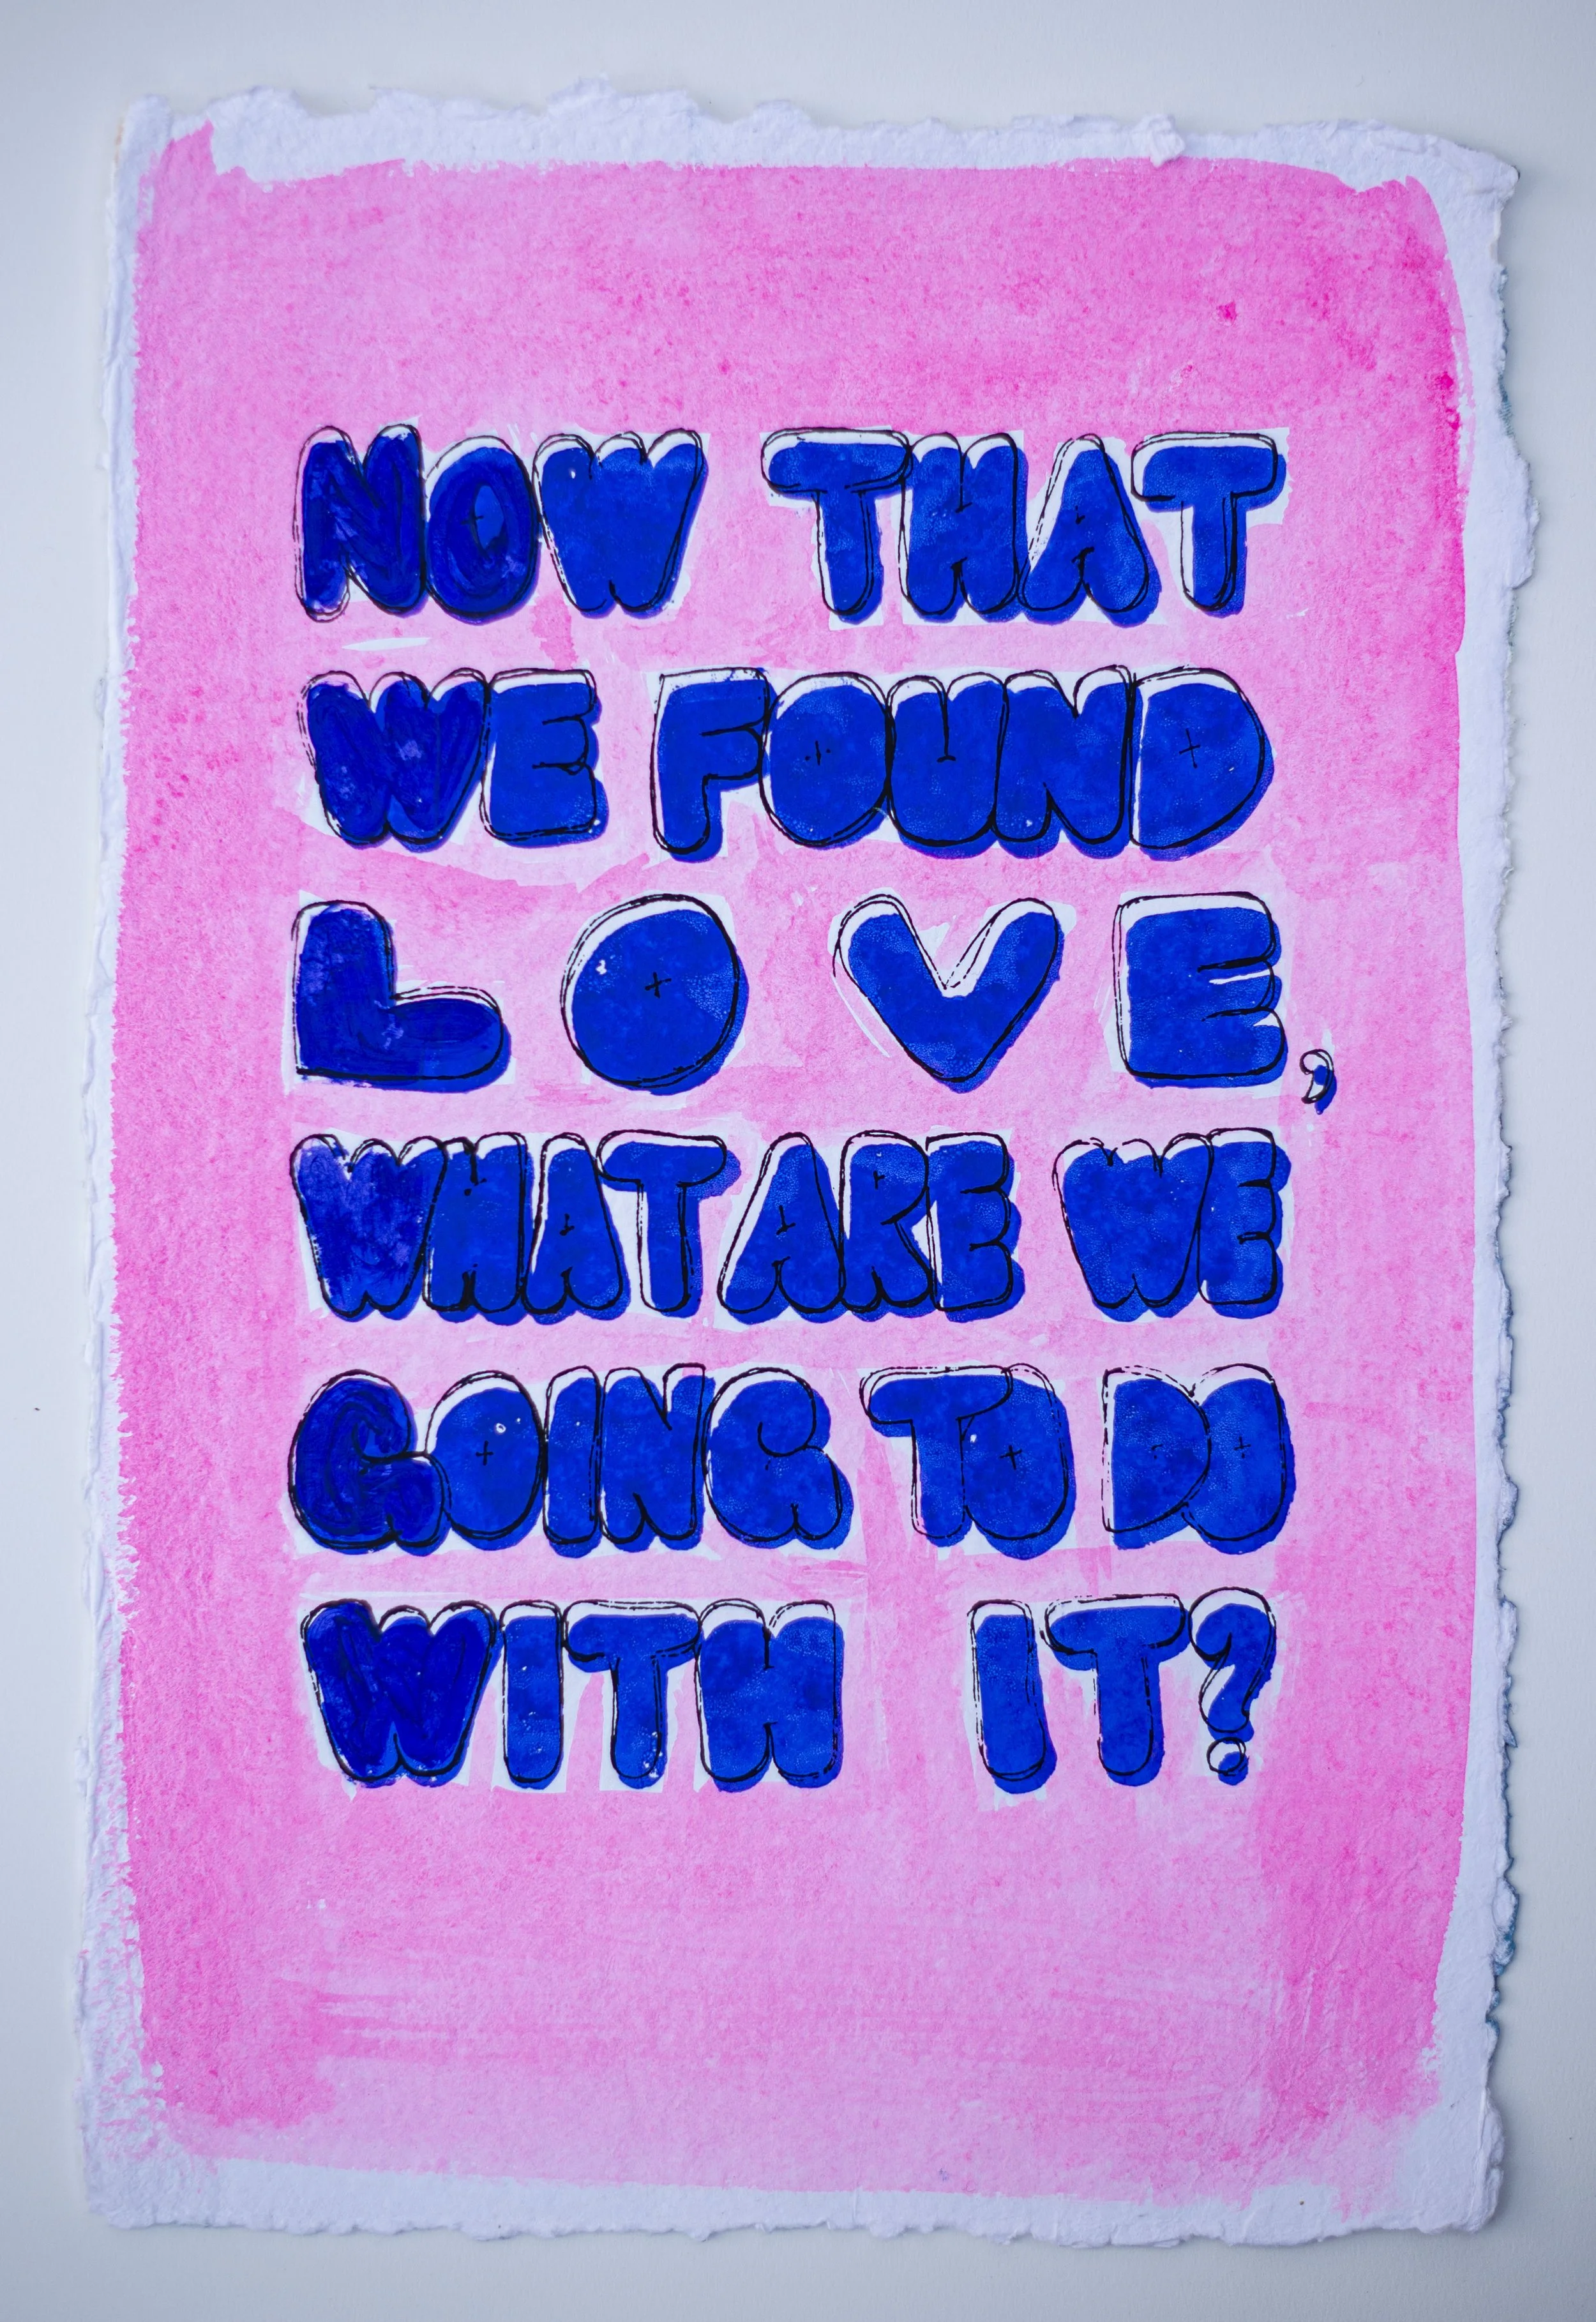 NOW THAT
WE FOUND
LOVE,
WHAT ARE WE
GOING TO DO
WITH IT?